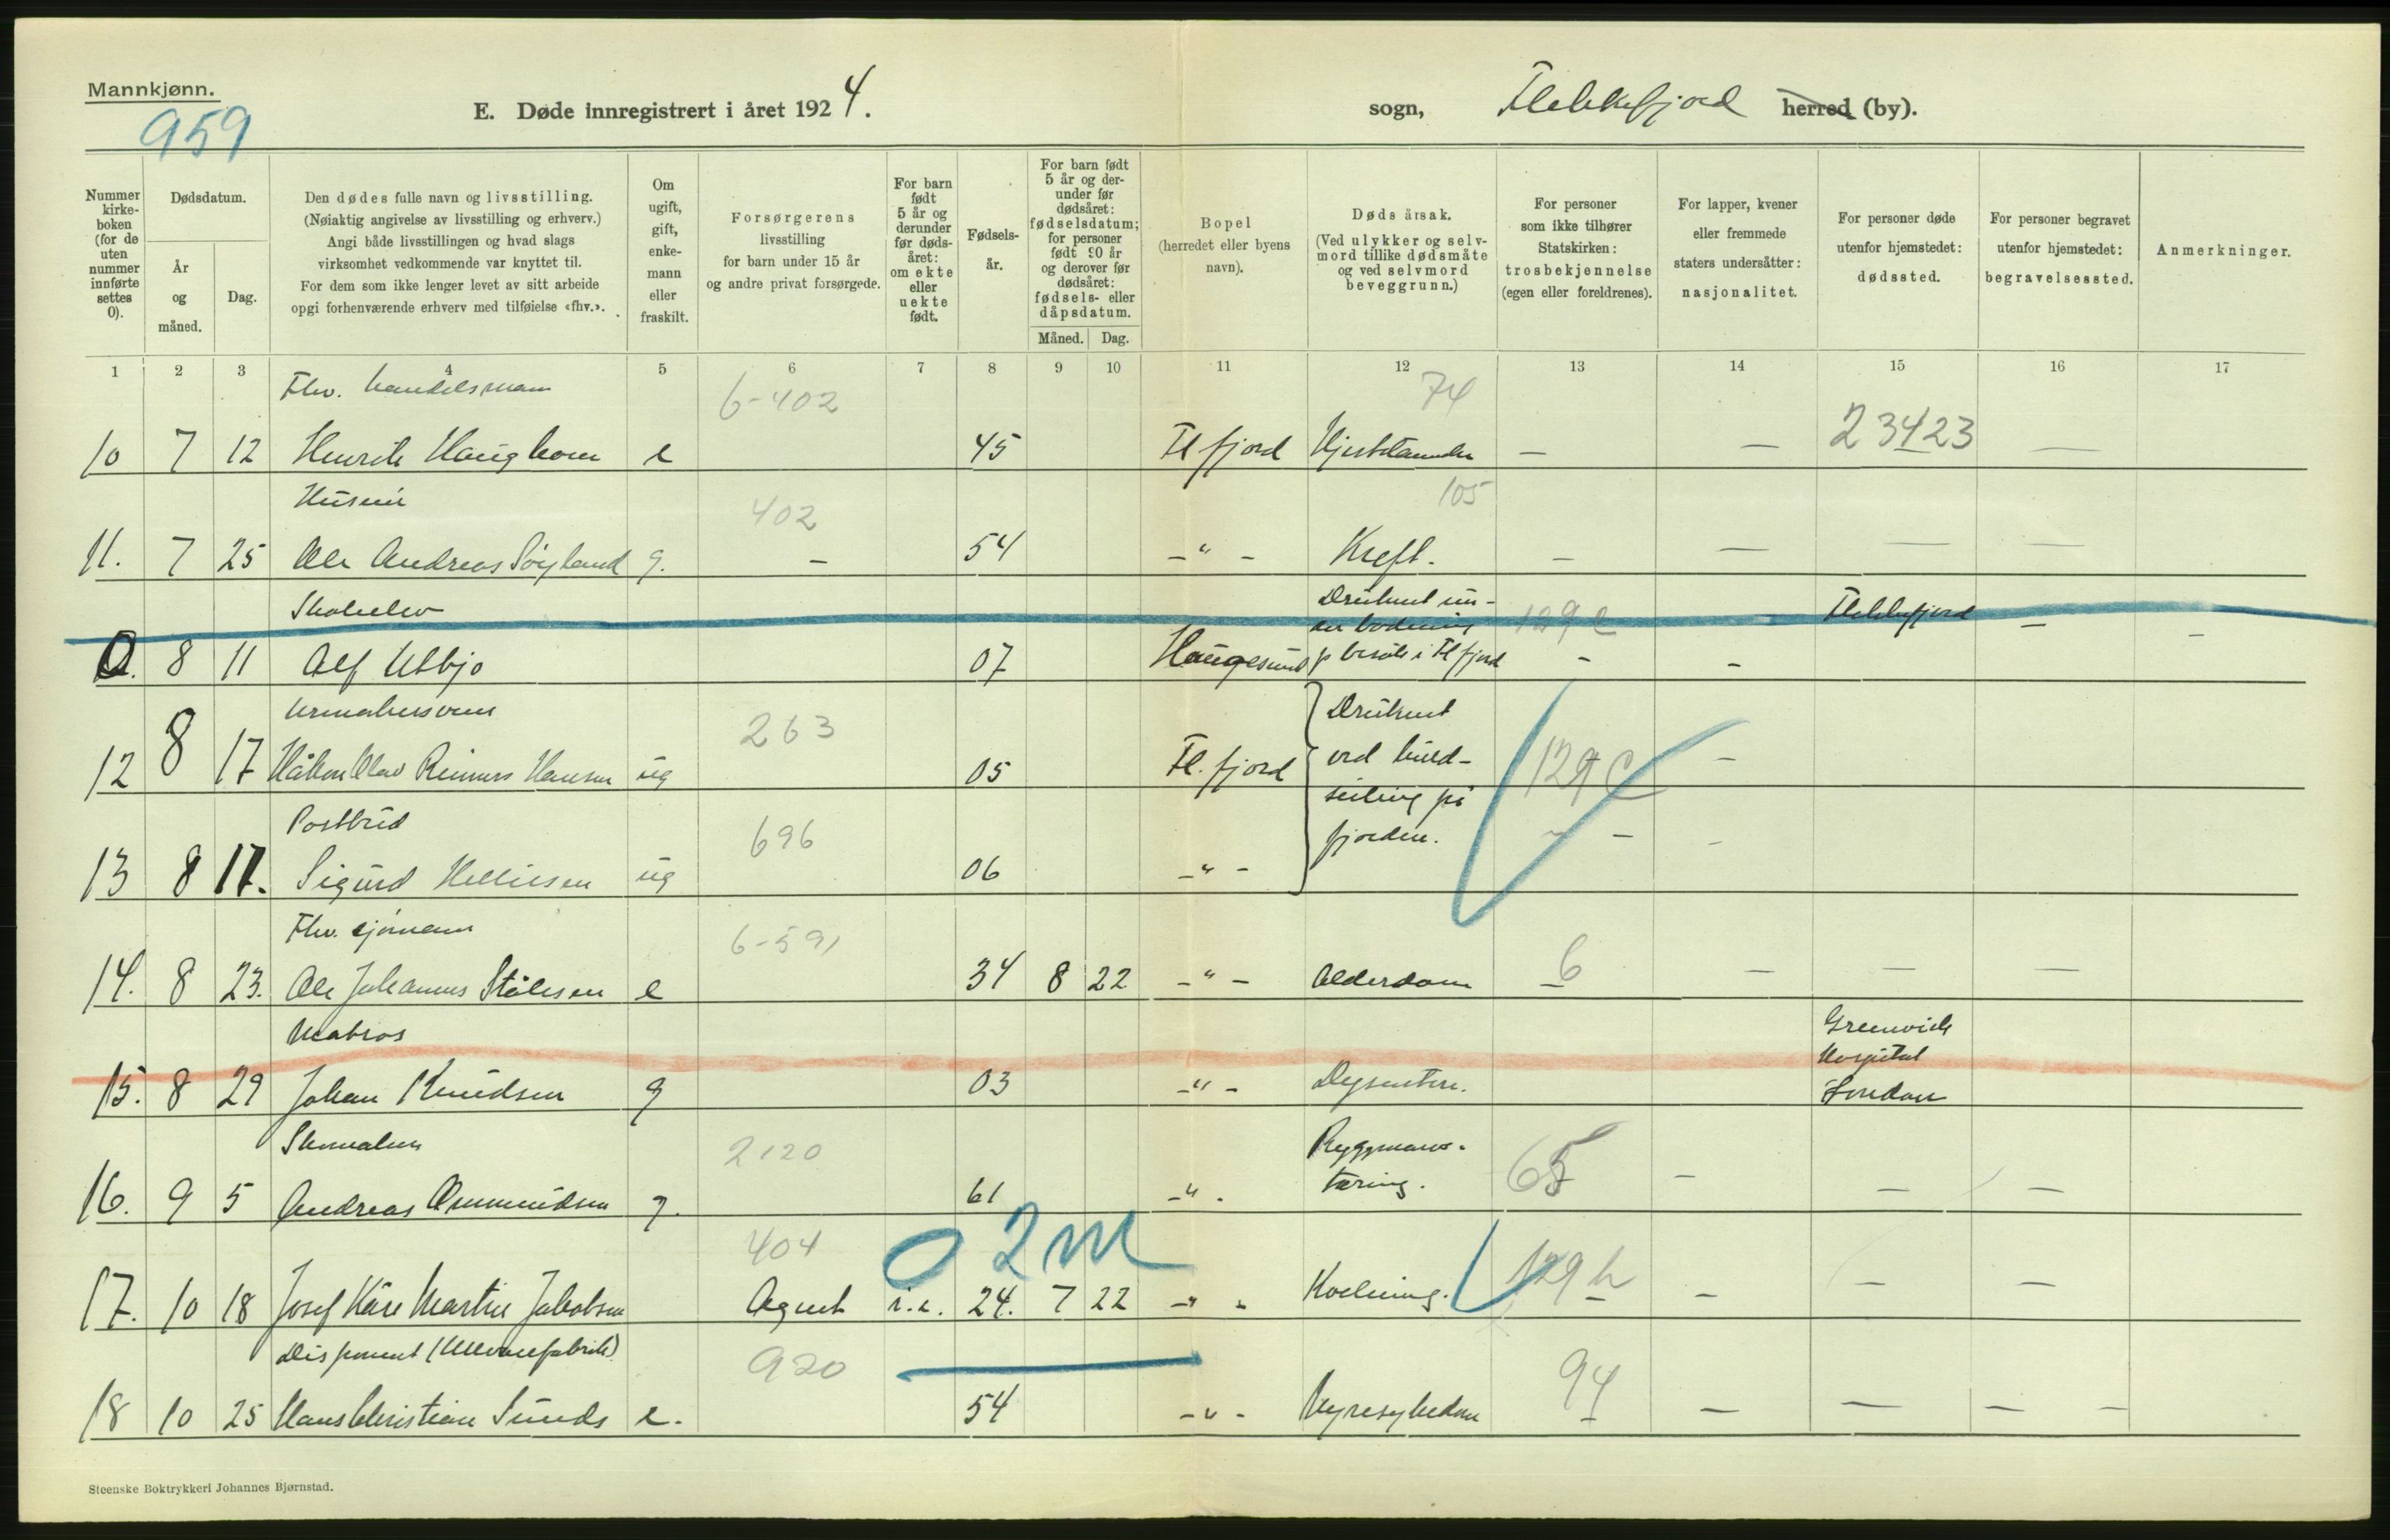 Mannkjønn.
959
E. Døde innregistrert i året 1924.
sogn, Flekkefjord herred (by).
Nummer kirke- boken (for de uten nummer innførte settes 0).
Dødsdatum.
År og måned.
Dag.
Den dødes fulle navn og livsstilling.
(Nøiaktig angivelse av livsstilling og erhverv.)
Angi både livsstillingen og hvad slags
virksomhet vedkommende var knyttet til.
For dem som ikke lenger levet av sitt arbeide
opgi forhenværende erhverv med tilføielse «fhv.».
Om ugift, gift, enke- mann eller fraskilt.
Forsørgerens
livsstilling
for barn under 15 år
og andre privat forsørgede.
For barn født 5 år og derunder før døds- året: om ekte eller uekte født.
Fødsels- år.
For barn født 5 år og der- under før dødsåret: fødselsdatum; for personer født 90 år og derover før dødsåret: fødsels- eller dåpsdatum.
Måned. Dag.
Bopel
(herredet eller byens
navn).
Dødsårsak.
(Ved ulykker og selv-
mord tillike dødsmåte
og ved selvmord
beveggrunn.)
For personer
som ikke tilhører
Statskirken:
trosbekjennelse
(egen eller foreldrenes).
For lapper, kvener
eller fremmede
staters undersåtter:
nasjonalitet.
For personer døde
utenfor hjemstedet:
dødssted.
For personer begravet
utenfor hjemstedet:
begravelsessted.
Anmerkninger.
1 2 3 4 5 6 7 8 9 10 11 12 13 14 15 16 17
Fhv. handelsmann 6-402 74
10 7 12 Henrik Haughom e 45 Fl fjord — — 23423 —
402 105
11. 7 25 Ole Andreas g. — 54 -"- Kreft. — — — —
Skoleelev Druknet un- 129 c Flekkefjord —
der badning
0. 8 11 Alf Utbjo 07 Haugesund på besök i Fl fjord - - -
Urmakersvenn 263 Druknet
12 8 17 Håkon Olav Reimers Hansen ug 05 Fl. fjord ved kuld- 129 c -
Postbud 696 seiling på
fjorden. - - -
13 8 17. Sigurd Hellesen ug 06 -"-
Fhv. sjömann 6-591
14. 8 23. Ole Johannes Stålesen e 34 8 22 -"- Alderdom 6 — — —
Matros Greenwich
Hospital
15. 8 29 Johan Knudsen g 03 -"- Dysenteri. London
Skomaker 2120 Ryggmarvs-
16. 9 5 Andreas Ommundsen g. 61 -"- tæring. 65 — — —
404 0 2 m
17. 10 18 Josef Kåre Martin Jakobsen Agent i.e. 24. 7 22 -"- Kvelning. 129 h — — —
Disponent (Ullvarefabrik) 920
18 10 25 Hans Christian Sunds e. 54 -"- Nyresykdom 94 — — — —
Steenske Boktrykkeri Johannes Bjørnstad.